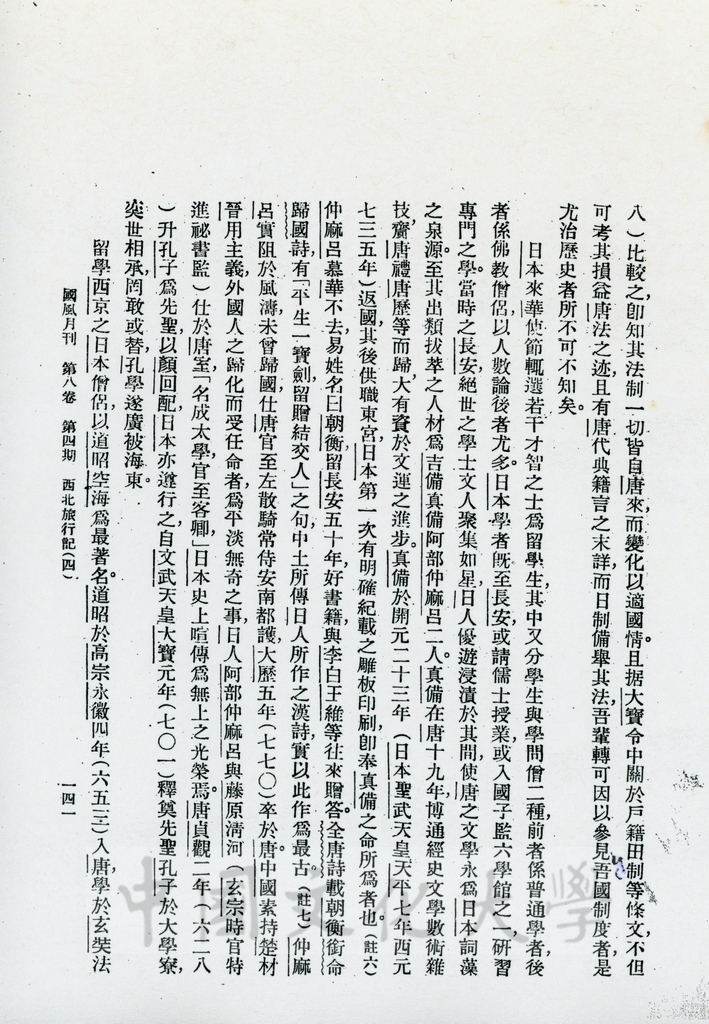 八）比較之卽知其法制一切皆自唐來，而變化以適國情。且据大寶令中關於戶籍田制等條文，不但
可考其損益唐法之迹，且有唐代典籍言之未詳，而日制備舉其法，吾輩轉可因以參見吾國制度者，是
尤治歷史者所不可不知矣。
日本來華使節，輒選若干才智之士爲留學生，其中又分學生與學問僧二種，前者係普通學者，後
者係佛教僧侶，以人數論後者尤多。日本學者旣至長安，或請儒士授業，或入國子監六學館之一，研習
專門之學。當時之長安，絕世之學士文人聚集如星，日人優遊浸漬於其間，使唐之文學，永爲日本詞藻
之泉源。至其出類拔萃之人材，爲吉備眞備阿部仲麻呂二人。眞備在唐十九年，博通經史文學數術雜
技，齎唐禮唐歷等而歸，大有資於文運之進步。眞備於開元二十三年（日本聖武天皇天平七年西元
七三五年）返國，其後供職東宮，日本第一次有明確紀載之雕板印刷，卽奉眞備之命所爲者也（註六）
仲麻呂慕華不去，易姓名曰朝衡，留長安五十年，好書籍，與李白王維等往來贈答。全唐詩載朝衡銜命
歸國詩，有「平生一寶劍，留贈結交人」之句，中土所傳日人所作之漢詩，實以此作爲最古（註七）仲麻
呂實阻於風濤，未曾歸國，仕唐官至左散騎常侍安南都護，大歷五年（七七〇）卒於唐。中國素持楚材
晉用主義，外國人之歸化而受任命者，爲平淡無奇之事，日人阿部仲麻呂與藤原淸河（玄宗時官特
進祕書監）仕於唐室，「名成太學官至客卿」，日本史上喧傳爲無上之光榮焉。唐貞觀二年（六二八
）升孔子爲先聖，以顏回配，日本亦遵行之，自文武天皇大寶元年（七〇一）釋奠先聖孔子於大學寮，
奕世相承，罔敢或替，孔學遂廣被海東。
留學西京之日本僧侶，以道昭空海爲最著名。道昭於高宗永徽四年（六五三）入唐，學於玄奘法
國風月刊　第八卷　第四期　西北旅行記（四）
一四一
中國文化大學